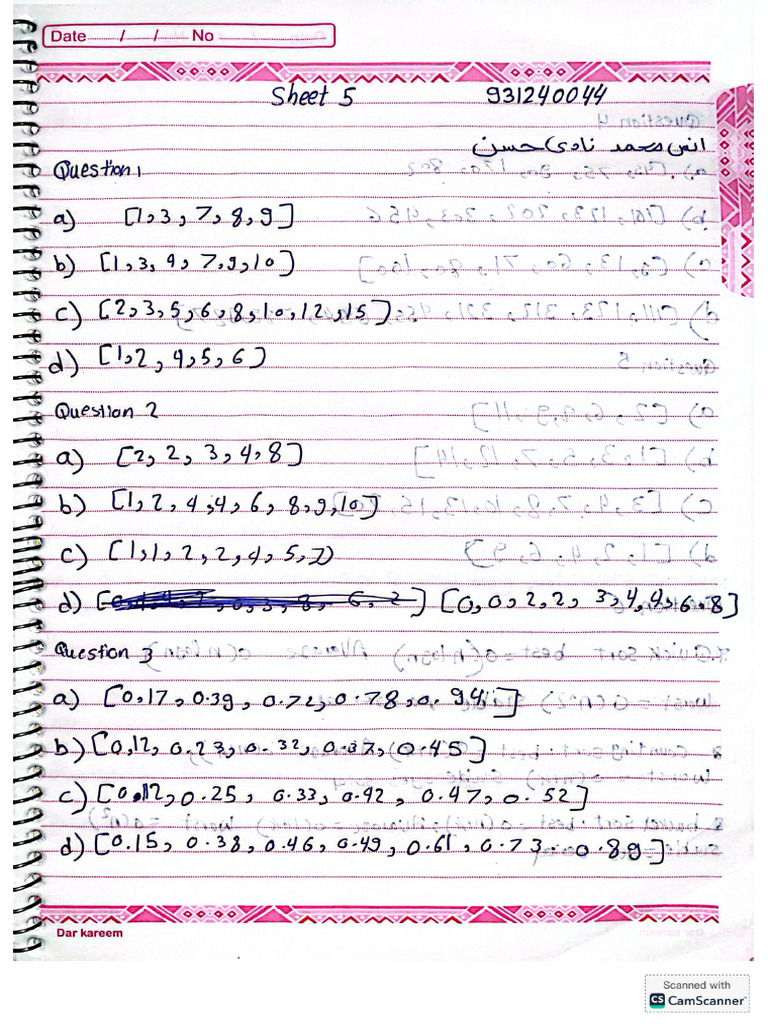 Date ...... / ...... / ...... No ..................
Sheet 5 931240044
انس محمد نادي حسن
Question 1
a) [1,3, 7, 8, 9]
b) [1,3, 4, 7,9,10]
c) [2,3,5,6,8,10,12,15]
d) [1,2, 4,5,6]
Question 2
a) [2, 2, 3, 4, 8]
b) [1, 2, 4,4, 6, 8,9,10]
c) [1,1, 2, 2, 4, 5, 7]
d) [0, 0, 2, 2, 3, 4, 4, 6, 8]
Question 3
a) [0.17, 0.39, 0.72, 0.78, 0.94]
b) [0,12, 0.23, 0.32, 0.37, 0.45]
c) [0.12, 0.25, 0.33, 0.42, 0.47, 0.52]
d) [0.15, 0.38, 0.46, 0.49, 0.61, 0.73, 0.89]
Dar kareem
Scanned with
CS CamScanner